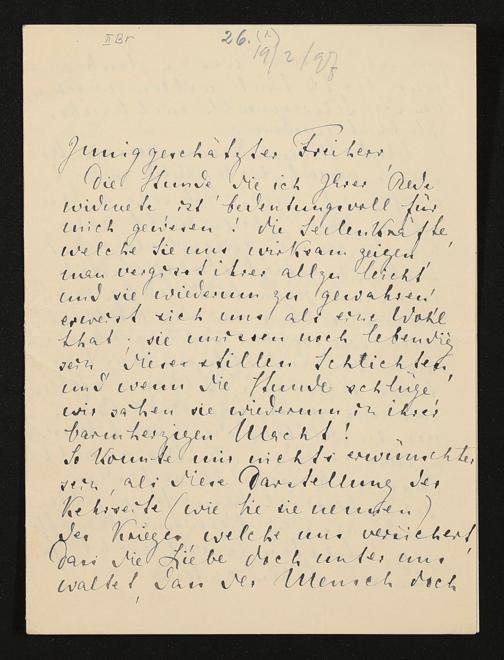 II Br
26. (1)
19/2/97
Inniggeschätzter Freiherr,
Die Stunde die ich Ihrer Rede
widmete ist bedeutungsvoll für
mich gewesen! die Seelenkräfte,
welche Sie uns wirksam zeigen,
man vergisst ihrer allzu leicht
und sie wiederum zu gewahren,
erweist sich uns als eine Wohl
that; sie müssen noch lebendig
sein, diese stillen Schlichten,
und wenn die Stunde schlüge,
wir sähen sie wiederum in ihrer
barmherzigen Macht!
So konnte mir nichts erwünschter
sein, als diese Darstellung der
Kehrseite (wie Sie sie nennen)
des Krieges welche uns versichert,
dass die Liebe doch unter uns
waltet, dass der Mensch doch